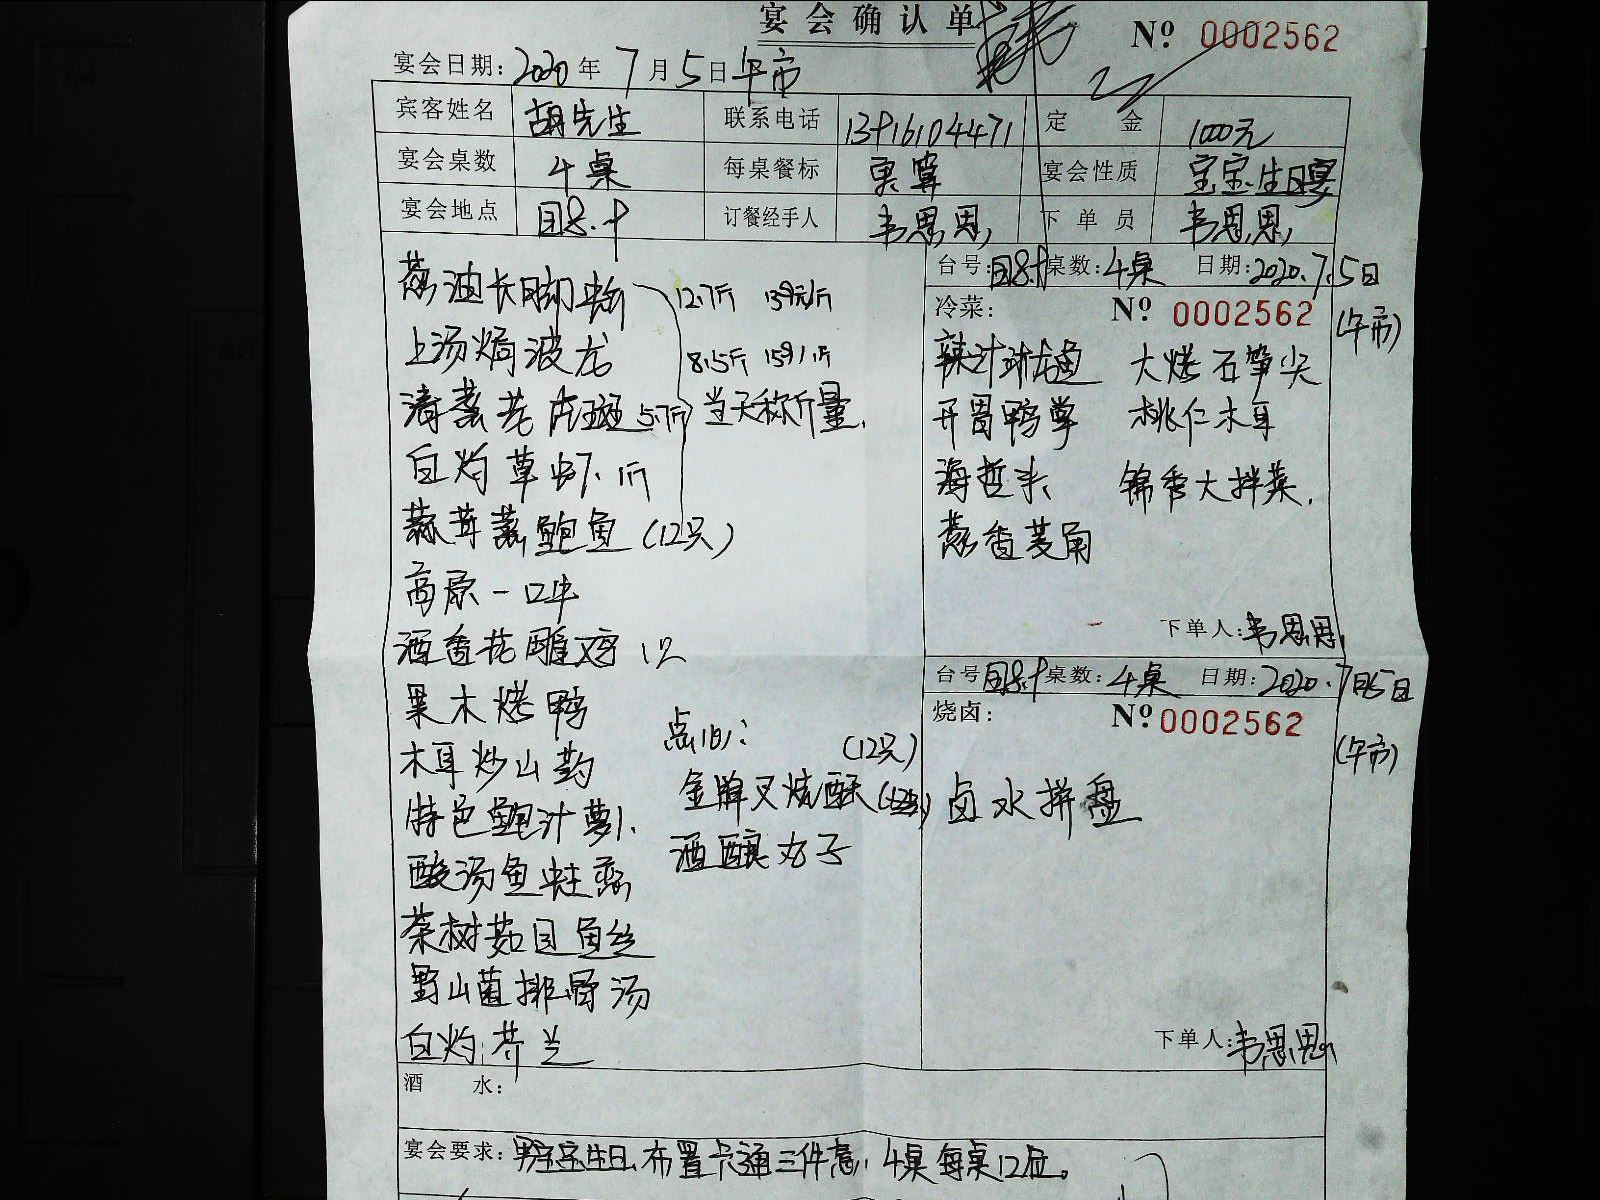 宴会确认单 № 0002562
宴会日期: 2020年7月5日午市
宾客姓名 胡先生 联系电话 13916104471 定金 1000元
宴会桌数 4桌 每桌餐标 宾客姓名
宴会地点 订餐经手人 韦恩恩 下单员 韦恩恩
葱油长脚蟹 12.7斤 139元/斤
上汤焗波龙 8.15斤 159/斤
清蒸老虎斑 5.7斤 当天称斤量.
白灼草虾1斤
蒜茸蒸鲍鱼(12只)
高原一口牛
酒香花雕鸡 1只
果木烤鸭
木耳炒山药
特色鲍汁萝卜
酸汤鱼
茶树菇目鱼丝
野山菌排骨汤
白灼芥兰
点心: (12只)
金牌叉烧酥
酒酿丸子
台号: 桌数: 4桌 日期: 2020.7.5日
冷菜: № 0002562 (午市)
辣汁 鱼 大烤石笋尖
开胃鸭掌 桃仁木耳
海哲头 锦秀大拌菜.
葱香菱角
下单人: 韦恩恩
台号 桌数: 4桌 日期: 2020.7月5日
烧卤: № 0002562
(午市)
卤水拼盘
下单人: 韦恩恩
酒水:
宴会要求: 男宝宝生日, 布置卡通三件套, 4桌每桌12位。